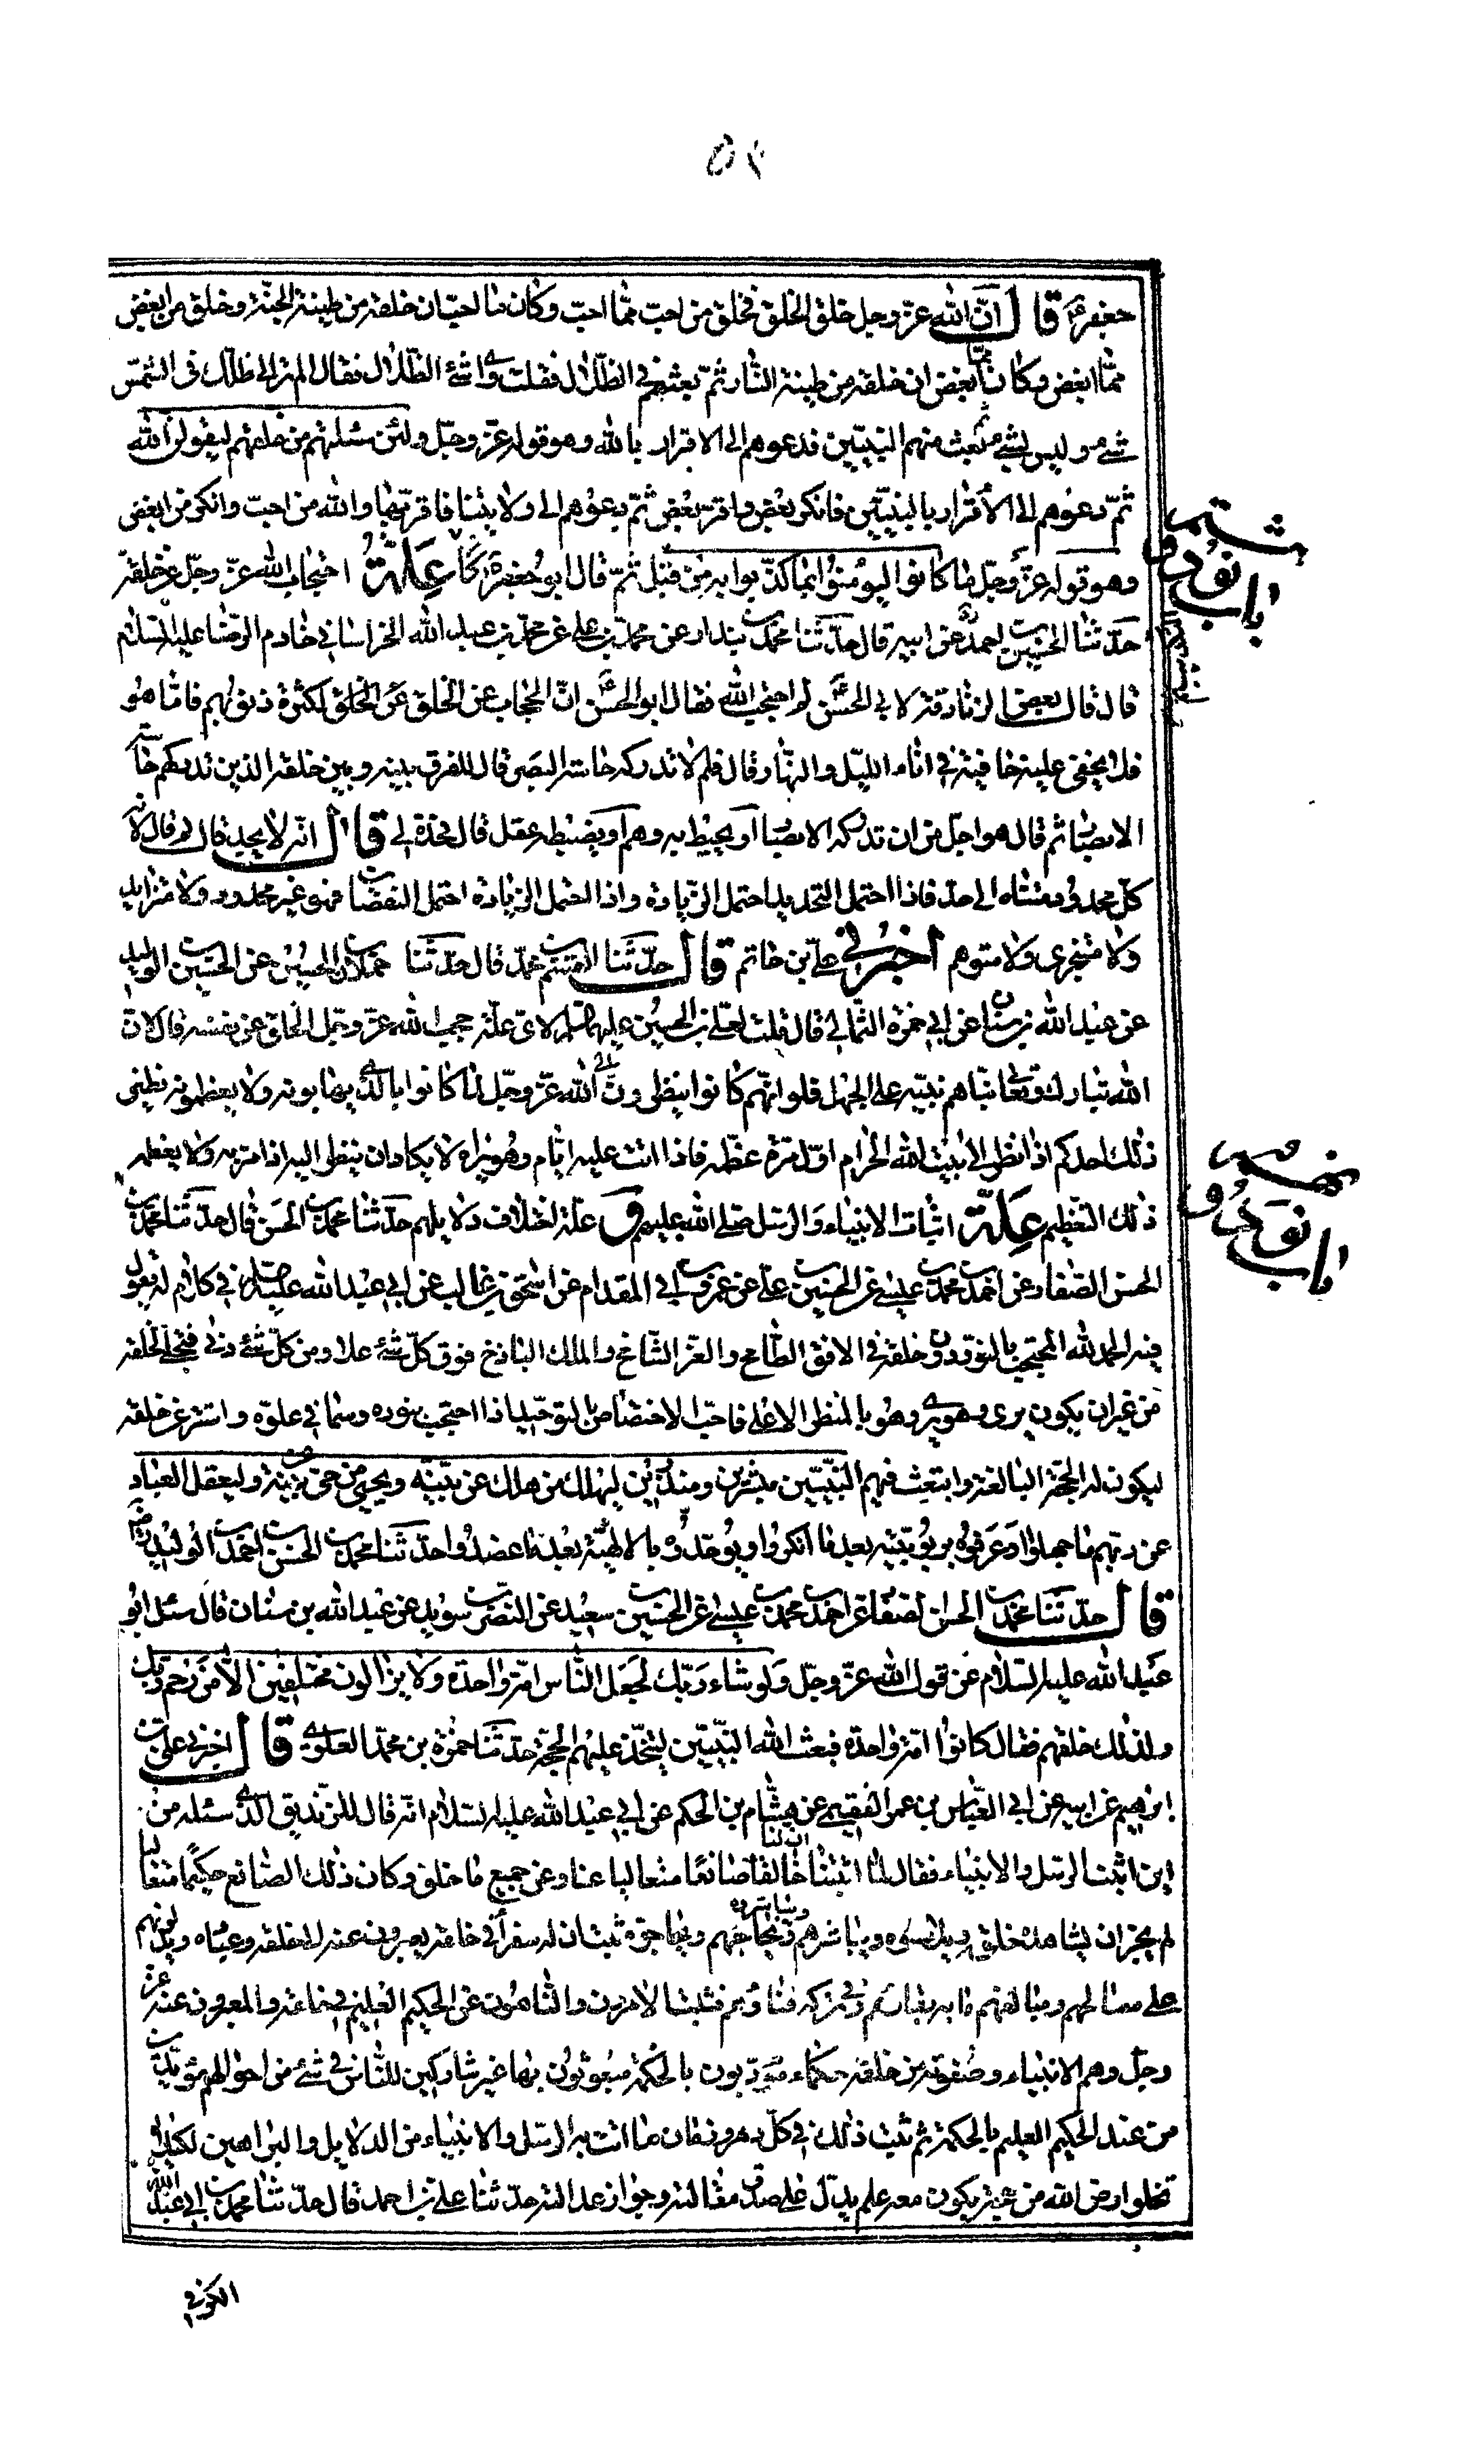 ٥٢
جعفر ع قال ان الله عز وجل خلق الخلق فخلق من احب مما احب وكان ما احب ان خلقه من طينة الجنة وخلق من ابغض
مما ابغض وكان ما ابغض ان خلقه من طينة النار ثم بعثهم في الظلال فقلت واي شئ الظلال فقال الم تر الى ظلك في الشمس
شئ وليس بشئ ثم بعث منهم النبيين فدعوهم الى الاقرار بالله وهو قوله عز وجل ولئن سئلتهم من خلقهم ليقولن الله
ثم دعوهم الى الاقرار بالنبيين فانكر بعض واقر بعض ثم دعوهم الى ولايتنا فاقر بها والله من احب وانكر من ابغض
وهو قوله عز وجل ما كانوا ليؤمنوا بما كذبوا به من قبل ثم قال ابو جعفر ع كان علة احتجاب الله عز وجل عن خلقه
باب نود و هشتم
حدثنا الحسين بن احمد عن ابيه قال حدثنا محمد بن بندار عن محمد بن علي عن محمد بن عبد الله الخراساني خادم الرضا عليه السلام
قال قال بعض الزنادقة لابي الحسن ع لم احتجب الله فقال ابو الحسن ع ان الحجاب عن الخلق لكثرة ذنوبهم فاما هو
فلا يخفى عليه خافية في اناء الليل والنهار قال فلم لا تدركه حاسة البصر قال للفرق بينه وبين خلقه الذين تدركهم حاسة
الابصار ثم قال هو اجل من ان تدركه الابصار او يحيط به وهم او يضبطه عقل قال فحده لي قال انه لا يحد قال لم قال لانه
كل محدود متناه الى حد فاذا احتمل التحديد احتمل الزيادة واذا احتمل الزيادة احتمل النقصان فهو غير محدود ولا متزايد
ولا متجزى ولا متوهم اخبرني علي بن حاتم قال حدثنا القسم بن محمد قال حدثنا حمدان بن الحسين عن الحسين بن الوليد
عن عبد الله بن سنان عن ابي حمزة الثمالي قال قلت لعلي بن الحسين عليهما السلم لاي علة حجب الله عز وجل الخلق عن نفسه قال لان
الله تبارك وتعالى بناهم بنية على الجهل فلو انهم كانوا ينظرون الى الله عز وجل لما كانوا بالذي يهابونه ولا يعظمونه نظير
ذلك احدكم اذا نظر الى بيت الله الحرام اول مرة عظمه فاذا اتت عليه ايام وهو يراه لا يكاد ان ينظر اليه اذا مر به ولا يعظمه
ذلك التعظيم علة اثبات الانبياء والرسل صلى الله عليهم و علة اختلاف دلايلهم حدثنا محمد بن الحسن قال حدثنا محمد بن
باب نود و نهم
الحسن الصفار عن احمد بن محمد بن عيسى عن الحسين بن علي عن عمرو بن ابي المقدام عن اسحق بن غالب عن ابي عبد الله عليه السلم في كلام له يقول
فيه الحمد لله المحتجب بالنور دون خلقه في الافق الطامح والعز الشامخ والملك الباذخ فوق كل شئ علا ومن كل شئ دنى فتجلى لخلقه
من غير ان يكون يرى وهو يرى وهو بالمنظر الاعلى فاحب الاختصاص بالتوحيد اذا احتجب بنوره وسما في علوه واستتر عن خلقه
ليكون له الحجة البالغة وابتعث فيهم النبيين مبشرين ومنذرين ليهلك من هلك عن بينة ويحيى من حي عن بينة وليعقل العباد
عن ربهم ما جهلوا وعرفوه بربوبيته بعد ما انكروا ويوحدوه بالالهية بعد ما عضدوا حدثنا محمد بن الحسن بن احمد بن الوليد
قال حدثنا محمد بن الحسن الصفار عن احمد بن محمد بن عيسى عن الحسين بن سعيد عن النضر بن سويد عن عبد الله بن سنان قال سئل ابو
عبد الله عليه السلام عن قول الله عز وجل ولو شاء ربك لجعل الناس امة واحدة ولا يزالون مختلفين الا من رحم ربك
ولذلك خلقهم فقال كانوا امة واحدة فبعث الله النبيين ليتخذ عليهم الحجة حدثنا حمزة بن محمد العلوي قال اخبرني علي بن
ابرهيم عن ابيه عن ابي العباس بن عمر الفقيمي عن هشام بن الحكم عن ابي عبد الله عليه السلام انه قال للزنديق الذي سئله من
اين اثبت الرسل والانبياء فقال لما اثبتنا ان لنا خالقا صانعا متعاليا عنا وعن جميع ما خلق وكان ذلك الصانع حكيما متعاليا
لم يجز ان يشاهده خلقه ولا يباشرهم ويباشروه ويحاجهم ويحاجوه ثبت ان له سفراء في خلقه يعبرون عنه الى خلقه وعباده ويدلونهم
على مصالحهم ومنافعهم وما به بقاؤهم وفي تركه فناؤهم فثبت الامرون والناهون عن الحكيم العليم في خلقه والمعبرون عنه عز
وجل وهم الانبياء وصفوته من خلقه حكماء مؤدبون بالحكمة مبعوثون بها غير مشاركين للناس في شئ من احوالهم مؤيدين
من عند الحكيم العليم بالحكمة ثم ثبت ذلك في كل دهر وزمان ما اتت به الرسل والانبياء من الدلايل والبراهين لكيلا
تخلو ارض الله من حجة يكون معه علم يدل على صدق مقالته وجواز عدالته حدثنا علي بن احمد قال حدثنا محمد بن ابي عبد الله
الكوفي